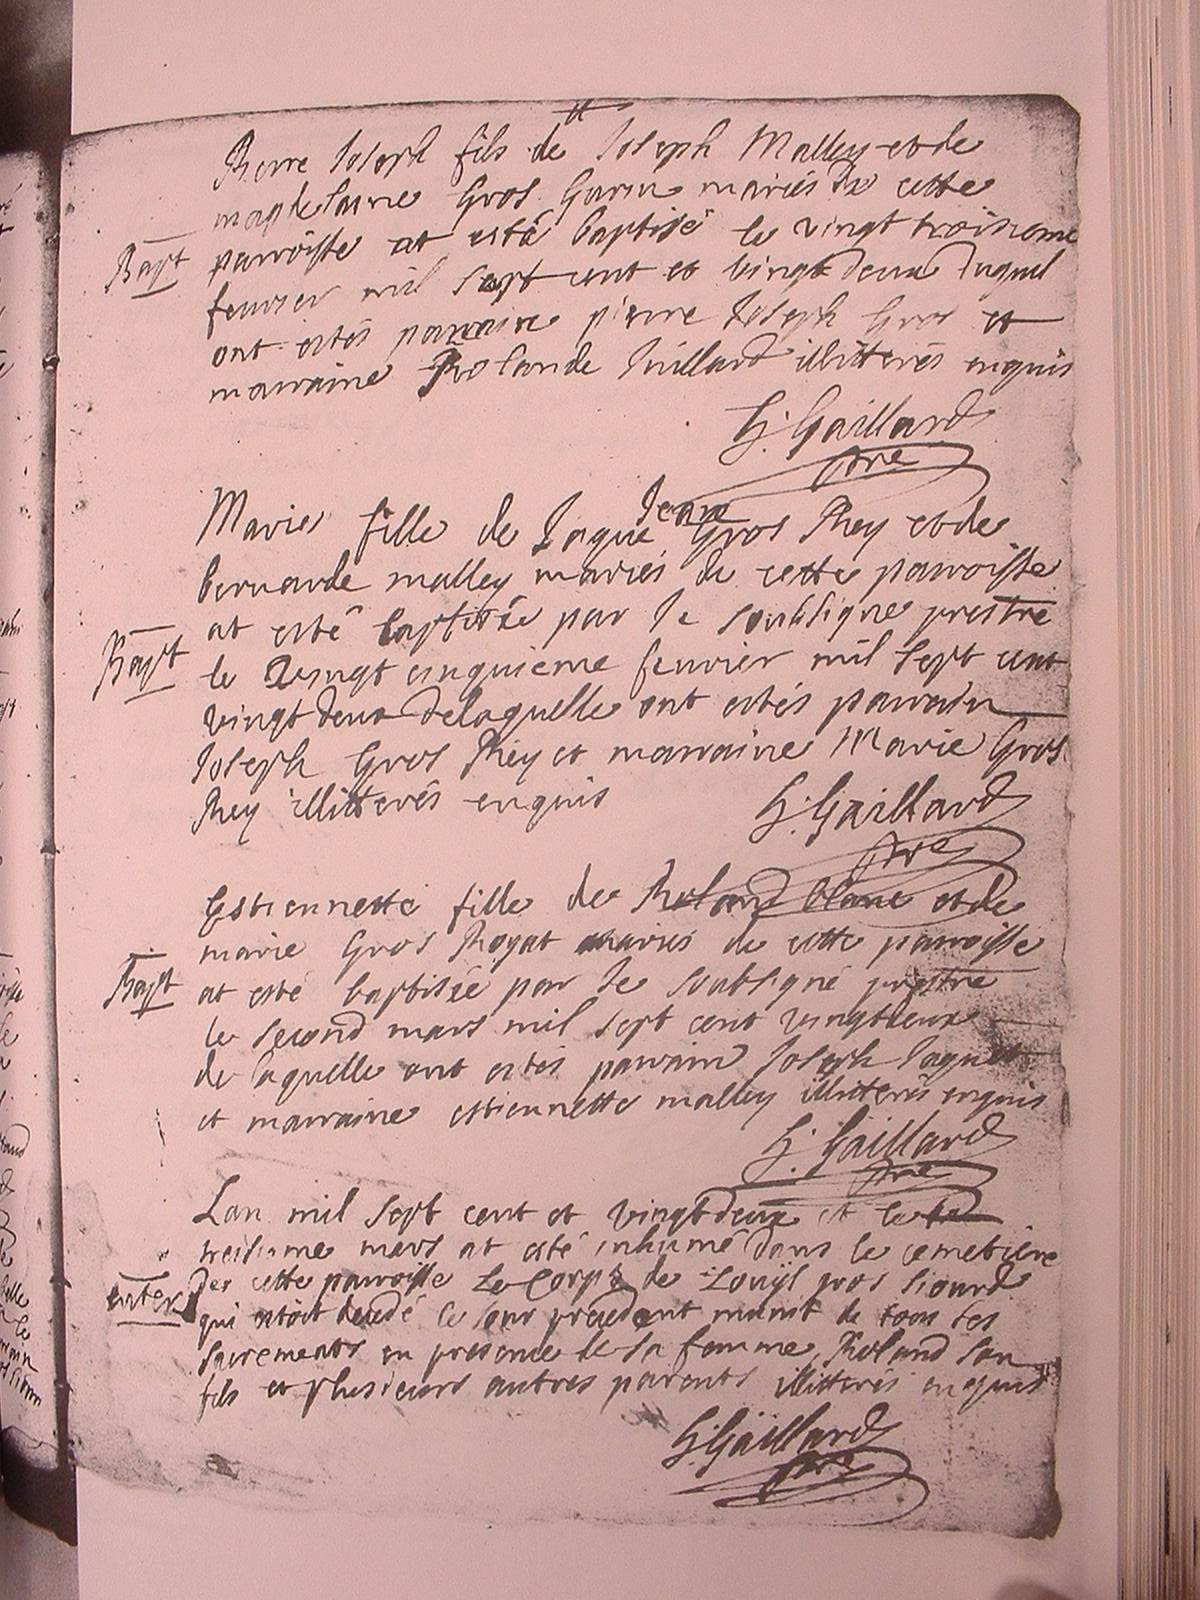 Pierre Joseph fils de Joseph Malley et de
magdelaine Gros Gurin mariés de cette
Bapt parroisse at esté baptisé le vingt troisieme
feuvrier mil sept cent et vingt deux duquel
ont estés parrain pierre Joseph Gros et
marraine Rolande Juillard illitterés enquis
G. Gaillard
pre
Marie fille de Jaque Jean Gros Rey et de
bernarde malley mariés de cette parroisse
Bapt at esté baptisée par Je soubsigne prestre
le vingt cinquieme feuvrier mil sept cent
vingt deux delaquelle ont estés parrain
Joseph Gros Rey et marraine Marie Gros
Rey illitterés enquis
G. Gaillard
pre
Estiennette fille de Roland blanc et de
marie Gros Royat mariés de cette parroisse
Bapt at esté baptisée par Je soubsigné prestre
le second mars mil sept cent vingt deux
de laquelle ont estés parrain Joseph Jaquet
et marraine estiennette malley illitterés enquis
G. Gaillard
pre
Lan mil sept cent et vingt deux et le
treisieme mars at esté inhumé dans le cemetiere
enter de cette parroisse Le Corps de Louÿs gros Siourd
qui estoit decedé le jour précedent munit de tous ses
sacrements en presence de sa femme, Roland son
fils et plusieurs autres parents illitterés enquis
G. Gaillard
pre